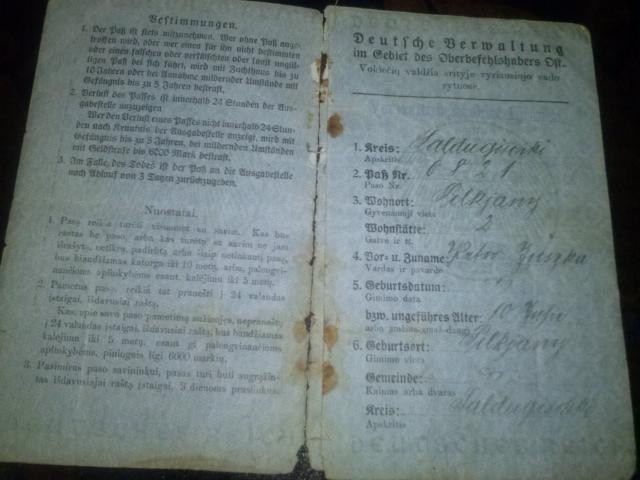 Bestimmungen.
1. Der Paß ist stets mitzunehmen. Wer ohne Paß ange-
troffen wird, oder wer einen für ihn nicht bestimmten
oder einen falschen oder verfälschten oder sonst ungül-
tigen Paß bei sich führt, wird mit Zuchthaus bis zu
10 Jahren oder bei Annahme mildernder Umstände mit
Gefängnis bis zu 5 Jahren bestraft.
2. Verlust des Passes ist innerhalb 24 Stunden der Aus-
gabestelle anzuzeigen.
Wer den Verlust eines Passes nicht innerhalb 24 Stun-
den nach Kenntnis der Ausgabestelle anzeigt, wird mit
Gefängnis bis zu 5 Jahren, bei mildernden Umständen
mit Geldstrafe bis 6000 Mark bestraft.
3. Im Falle des Todes ist der Paß an die Ausgabestelle
nach Ablauf von 3 Tagen zurückzugeben.
Nuostatai.
1. Pasą reikia turėti visuomet su savim. Kas bus
rastas be paso, arba kas turėtų su savim ne jam
išrašytą, netikrą, padirbtą arba šiaip netinkantį pasą,
bus baudžiamas katorga iki 10 metų, arba, palengvi-
nančioms aplinkybėms esant, kalėjimu iki 5 metų.
2. Pametus pasą, reikia tat pranešti į 24 valandas
įstaigai, išdavusiai raštą.
Kas, apie savo paso pametimą sužinojęs, nepraneštų
į 24 valandas įstaigai, išdavusiai raštą, bus baudžiamas
kalėjimu iki 5 metų, esant gi palengvinančioms
aplinkybėms, piningais ligi 6000 markių.
3. Pasimirus paso savininkui, pasas turi būti sugrąžin-
tas išdavusiajai raštą įstaigai, 3 dienoms praslinkus.
Deutsche Verwaltung
im Gebiet des Oberbefehlshabers Ost.
Vokiečių valdžia srityje vyriausiojo vado
rytuose.
1. Kreis:
Apskritis
2. Paß Nr. 6821
Paso Nr.
3. Wohnort: Pilkjany
Gyvenamoji vieta
Wohnstätte: 2
Gatvė ir tt.
4. Vor- u. Zuname:
Vardas ir pavardė
5. Geburtsdatum:
Gimimo data
bzw. ungefähres Alter: 10
arba amžius
6. Geburtsort: Pilkjany
Gimimo vieta
Gemeinde:
Kaimas arba dvaras
Kreis:
Apskritis